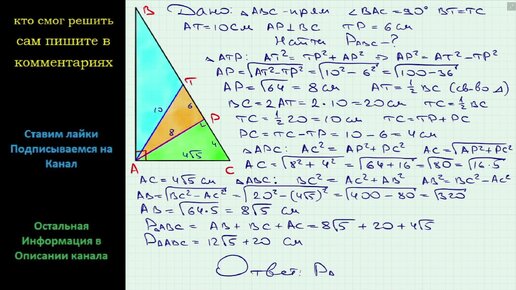 кто смог решить
сам пишите в
комментариях
Ставим лайки
Подписываемся на
Канал
Остальная
Информация в
Описании канала
B
T
10
6
P
8
4
A
4√5
C
Дано: △ABC-прям ∠BAC=90° BT=TC
AT=10см AP⊥BC TP=6см
Найти P△ABC-?
△ATP: AT²=TP²+AP² ⇒ AP²=AT²-TP²
AP=√AT²-TP²=√10²-6²=√100-36
AP=√64=8см AT=½BC (св-во △)
BC=2AT=2·10=20см TC=½BC
TC=½20=10см TC=TP+PC
PC=TC-TP=10-6=4см
△APC: AC²=AP²+PC² AC=√AP²+PC²
AC=√8²+4²=√64+16=√80=√16·5
AC=4√5 см △ABC: BC²=AC²+AB² AB²=BC²-AC²
AB=√BC²-AC²=√20²-(4√5)²=√400-80=√320
AB=√64·5=8√5 см
P△ABC=AB+BC+AC=8√5+20+4√5
P△ABC=12√5+20 см
Ответ: P△